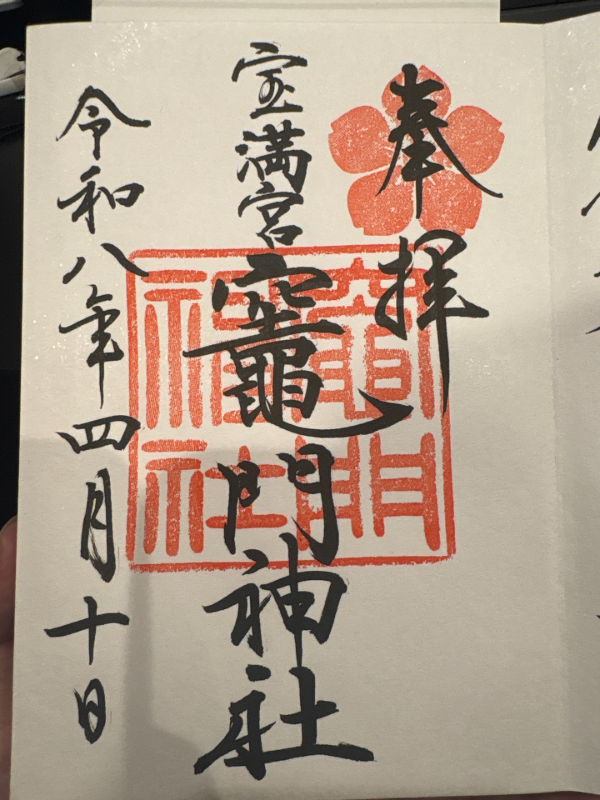 奉拝
宝満宮
竈門神社
竈門
神社
令和八年四月十日